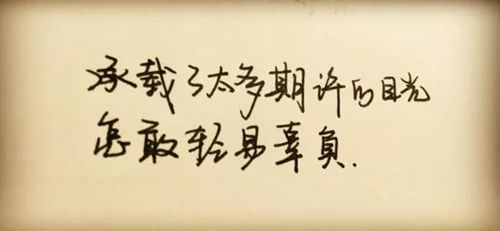 承载了太多期许的目光
怎敢轻易辜負.